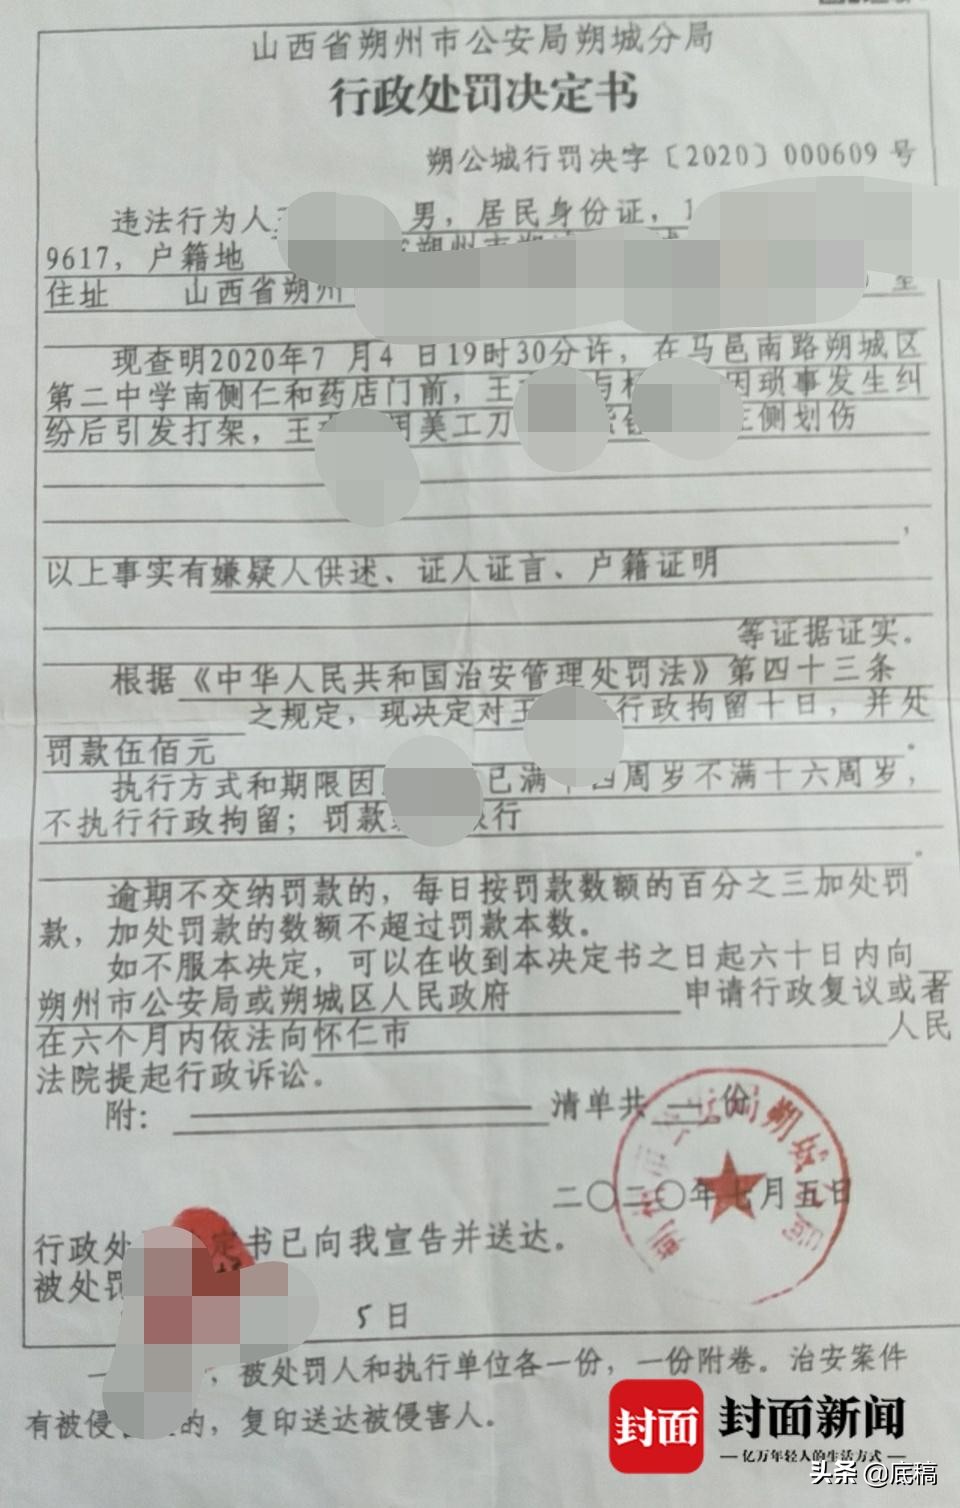 山西省朔州市公安局朔城分局
行政处罚决定书
朔公城行罚决字〔2020〕000609号
违法行为人 男，居民身份证，1
9617，户籍地
住址 山西省朔州
现查明2020年7月4日19时30分许，在马邑南路朔城区
第二中学南侧仁和药店门前，王 与 因琐事发生纠
纷后引发打架，王 用美工刀 左侧划伤
，
以上事实有嫌疑人供述、证人证言、户籍证明
等证据证实。
根据《中华人民共和国治安管理处罚法》第四十三条
之规定，现决定对王 行政拘留十日，并处
罚款伍佰元
。
执行方式和期限因 已满十四周岁不满十六周岁，
不执行行政拘留；罚款 银行
。
逾期不交纳罚款的，每日按罚款数额的百分之三加处罚
款，加处罚款的数额不超过罚款本数。
如不服本决定，可以在收到本决定书之日起六十日内向
朔州市公安局或朔城区人民政府 申请行政复议或者
在六个月内依法向怀仁市 人民
法院提起行政诉讼。
附： 清单共 一 份
二〇二〇年七月五日
行政处 定书已向我宣告并送达。
被处罚
5日
一 ，被处罚人和执行单位各一份，一份附卷。治安案件
有被侵害 的，复印送达被侵害人。
封面 封面新闻
亿万年轻人的生活方式
头条 @底稿